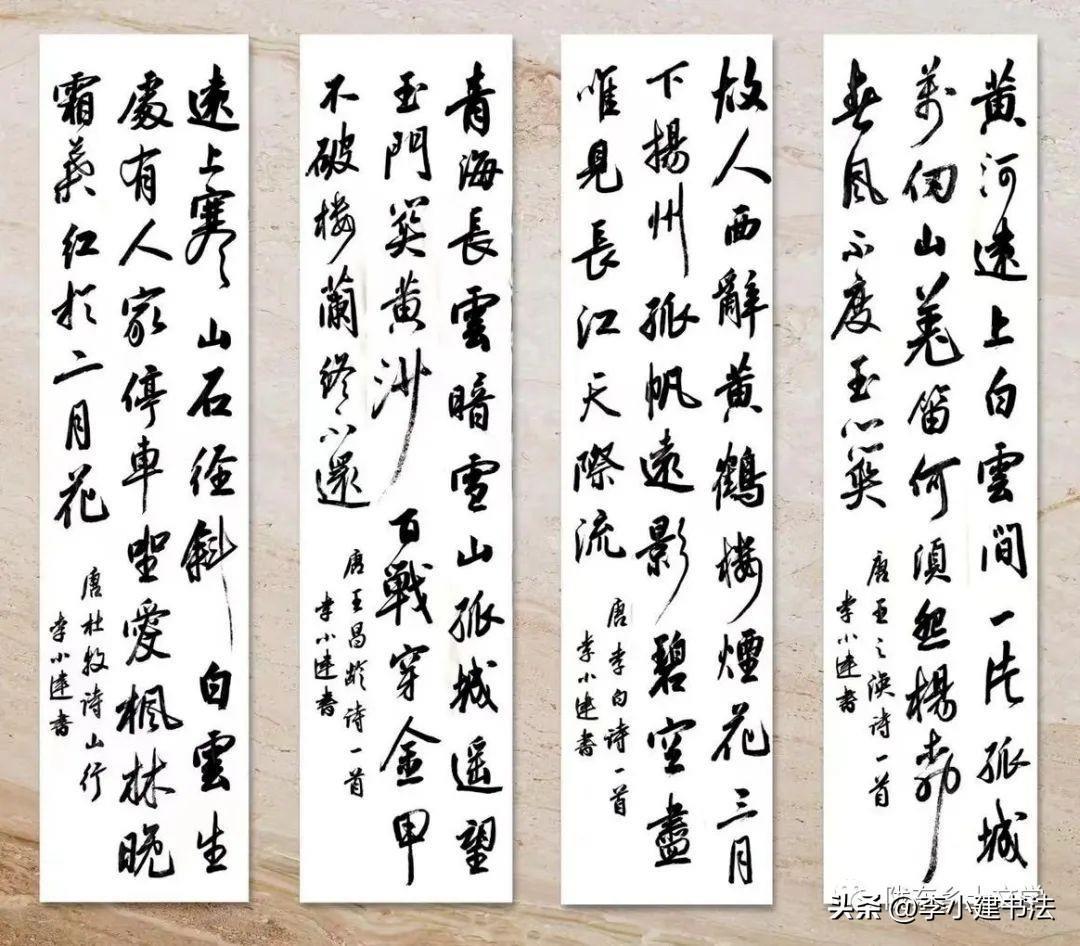 黄河遠上白雲間一片孤城
萬仞山羌笛何須怨楊柳
春風不度玉門關
唐王之渙詩一首
李小建書
故人西辭黄鶴樓煙花三月
下揚州孤帆遠影碧空盡
唯見長江天際流
唐李白詩一首
李小建書
青海長雲暗雪山孤城遥望
玉門關黄沙百戰穿金甲
不破樓蘭終不還
唐王昌齡詩一首
李小建書
遠上寒山石徑斜白雲生
處有人家停車坐愛楓林晚
霜葉紅於二月花
唐杜牧詩山行
李小建書
头条 @李小建书法